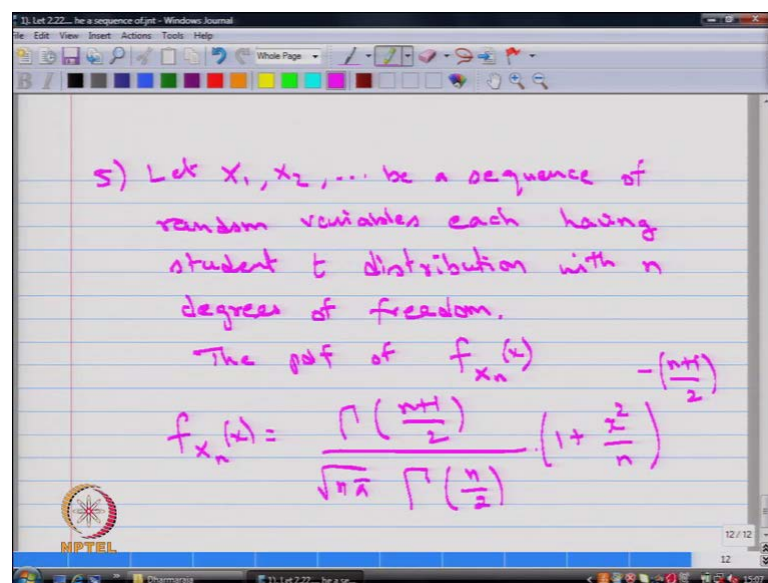 1). Let 2.22.... he a sequence of.jnt - Windows Journal
File Edit View Insert Actions Tools Help
Whole Page
B I
5) Let X₁, X₂, ... be a sequence of
random variables each having
student t distribution with n
degrees of freedom.
The pdf of f_{X_n}(x)
f_{X_n}(x) = Γ((n+1)/2) / (√(nπ) Γ(n/2)) (1 + x²/n)^{-((n+1)/2)}
NPTEL
12 / 12
12
Dharmaraja
1). Let 2.22.... he a se...
15:07